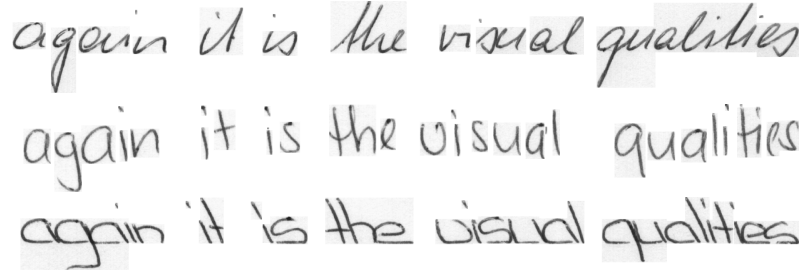 again it is the visual qualities
again it is the visual qualities
again it is the visual qualities